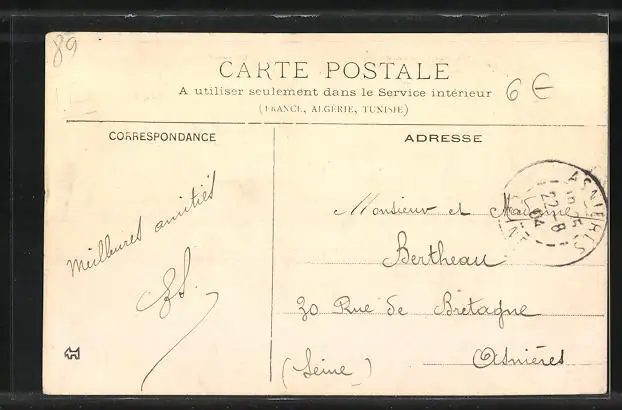 89
CARTE POSTALE
A utiliser seulement dans le Service intérieur
(FRANCE, ALGÉRIE, TUNISIE)
6 €
CORRESPONDANCE
ADRESSE
Meilleures amitiés
Monsieur et Madame
Bertheau
30 Rue de Bretagne
Asnières
(Seine)
ASNIERES
22-8
04